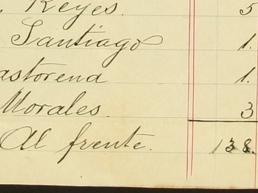 Reyes. 5
Santiago 1.
astorena 1.
Morales. 3
Al frente. 138.